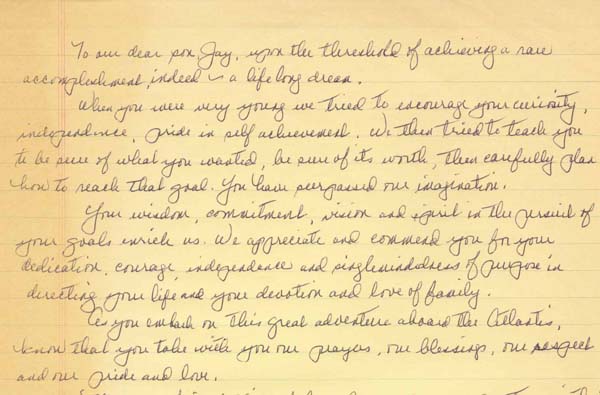 To our dear son, Jay, upon the threshold of achieving a rare
accomplishment, indeed a life long dream.
When you were very young we tried to encourage your curiosity,
independence, pride in self achievement. We then tried to teach you
to be sure of what you wanted, be sure of its worth, then carefully plan
how to reach that goal. You have surpassed our imagination.
Your wisdom, commitment, vision and spirit in the pursuit of
your goals enrich us. We appreciate and commend you for your
dedication, courage, independence and singlemindedness of purpose in
directing your life and your devotion and love of family.
As you embark on this great adventure aboard the Atlantis,
know that you take with you our prayers, our blessings, our respect
and our pride and love.